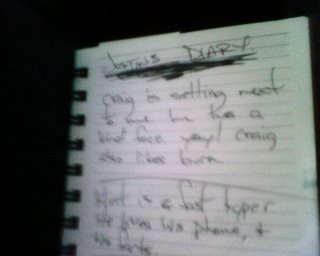 Justin's DIARY.
craig is setting next
to me he has a
kind face yay! craig
also likes
is a fast typer
He loves his phone, +
his